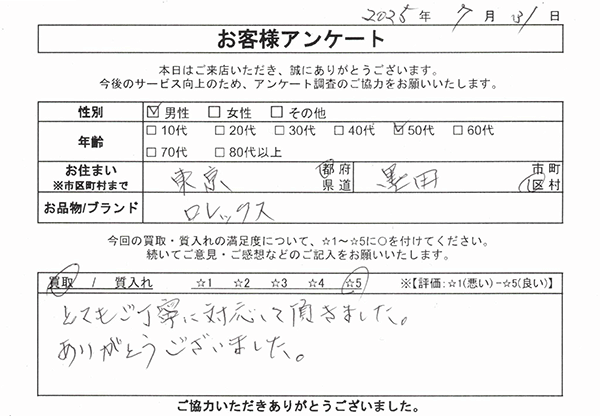 2025年 7月 31日
お客様アンケート
本日はご来店いただき、誠にありがとうございます。
今後のサービス向上のため、アンケート調査のご協力をお願いいたします。
性別 ☑男性 □女性 □その他
年齢 □10代 □20代 □30代 □40代 ☑50代 □60代
□70代 □80代以上
お住まい ※市区町村まで 東京 都府県道 墨田 市町区村
お品物/ブランド ロレックス
今回の買取・質入れの満足度について、☆1～☆5に○を付けてください。
続いてご意見・ご感想などのご記入をお願いいたします。
買取 / 質入れ ☆1 ☆2 ☆3 ☆4 ☆5 ※【評価:☆1(悪い)-☆5(良い)】
とてもご丁寧に対応して頂きました。
ありがとうございました。
ご協力いただきありがとうございました。